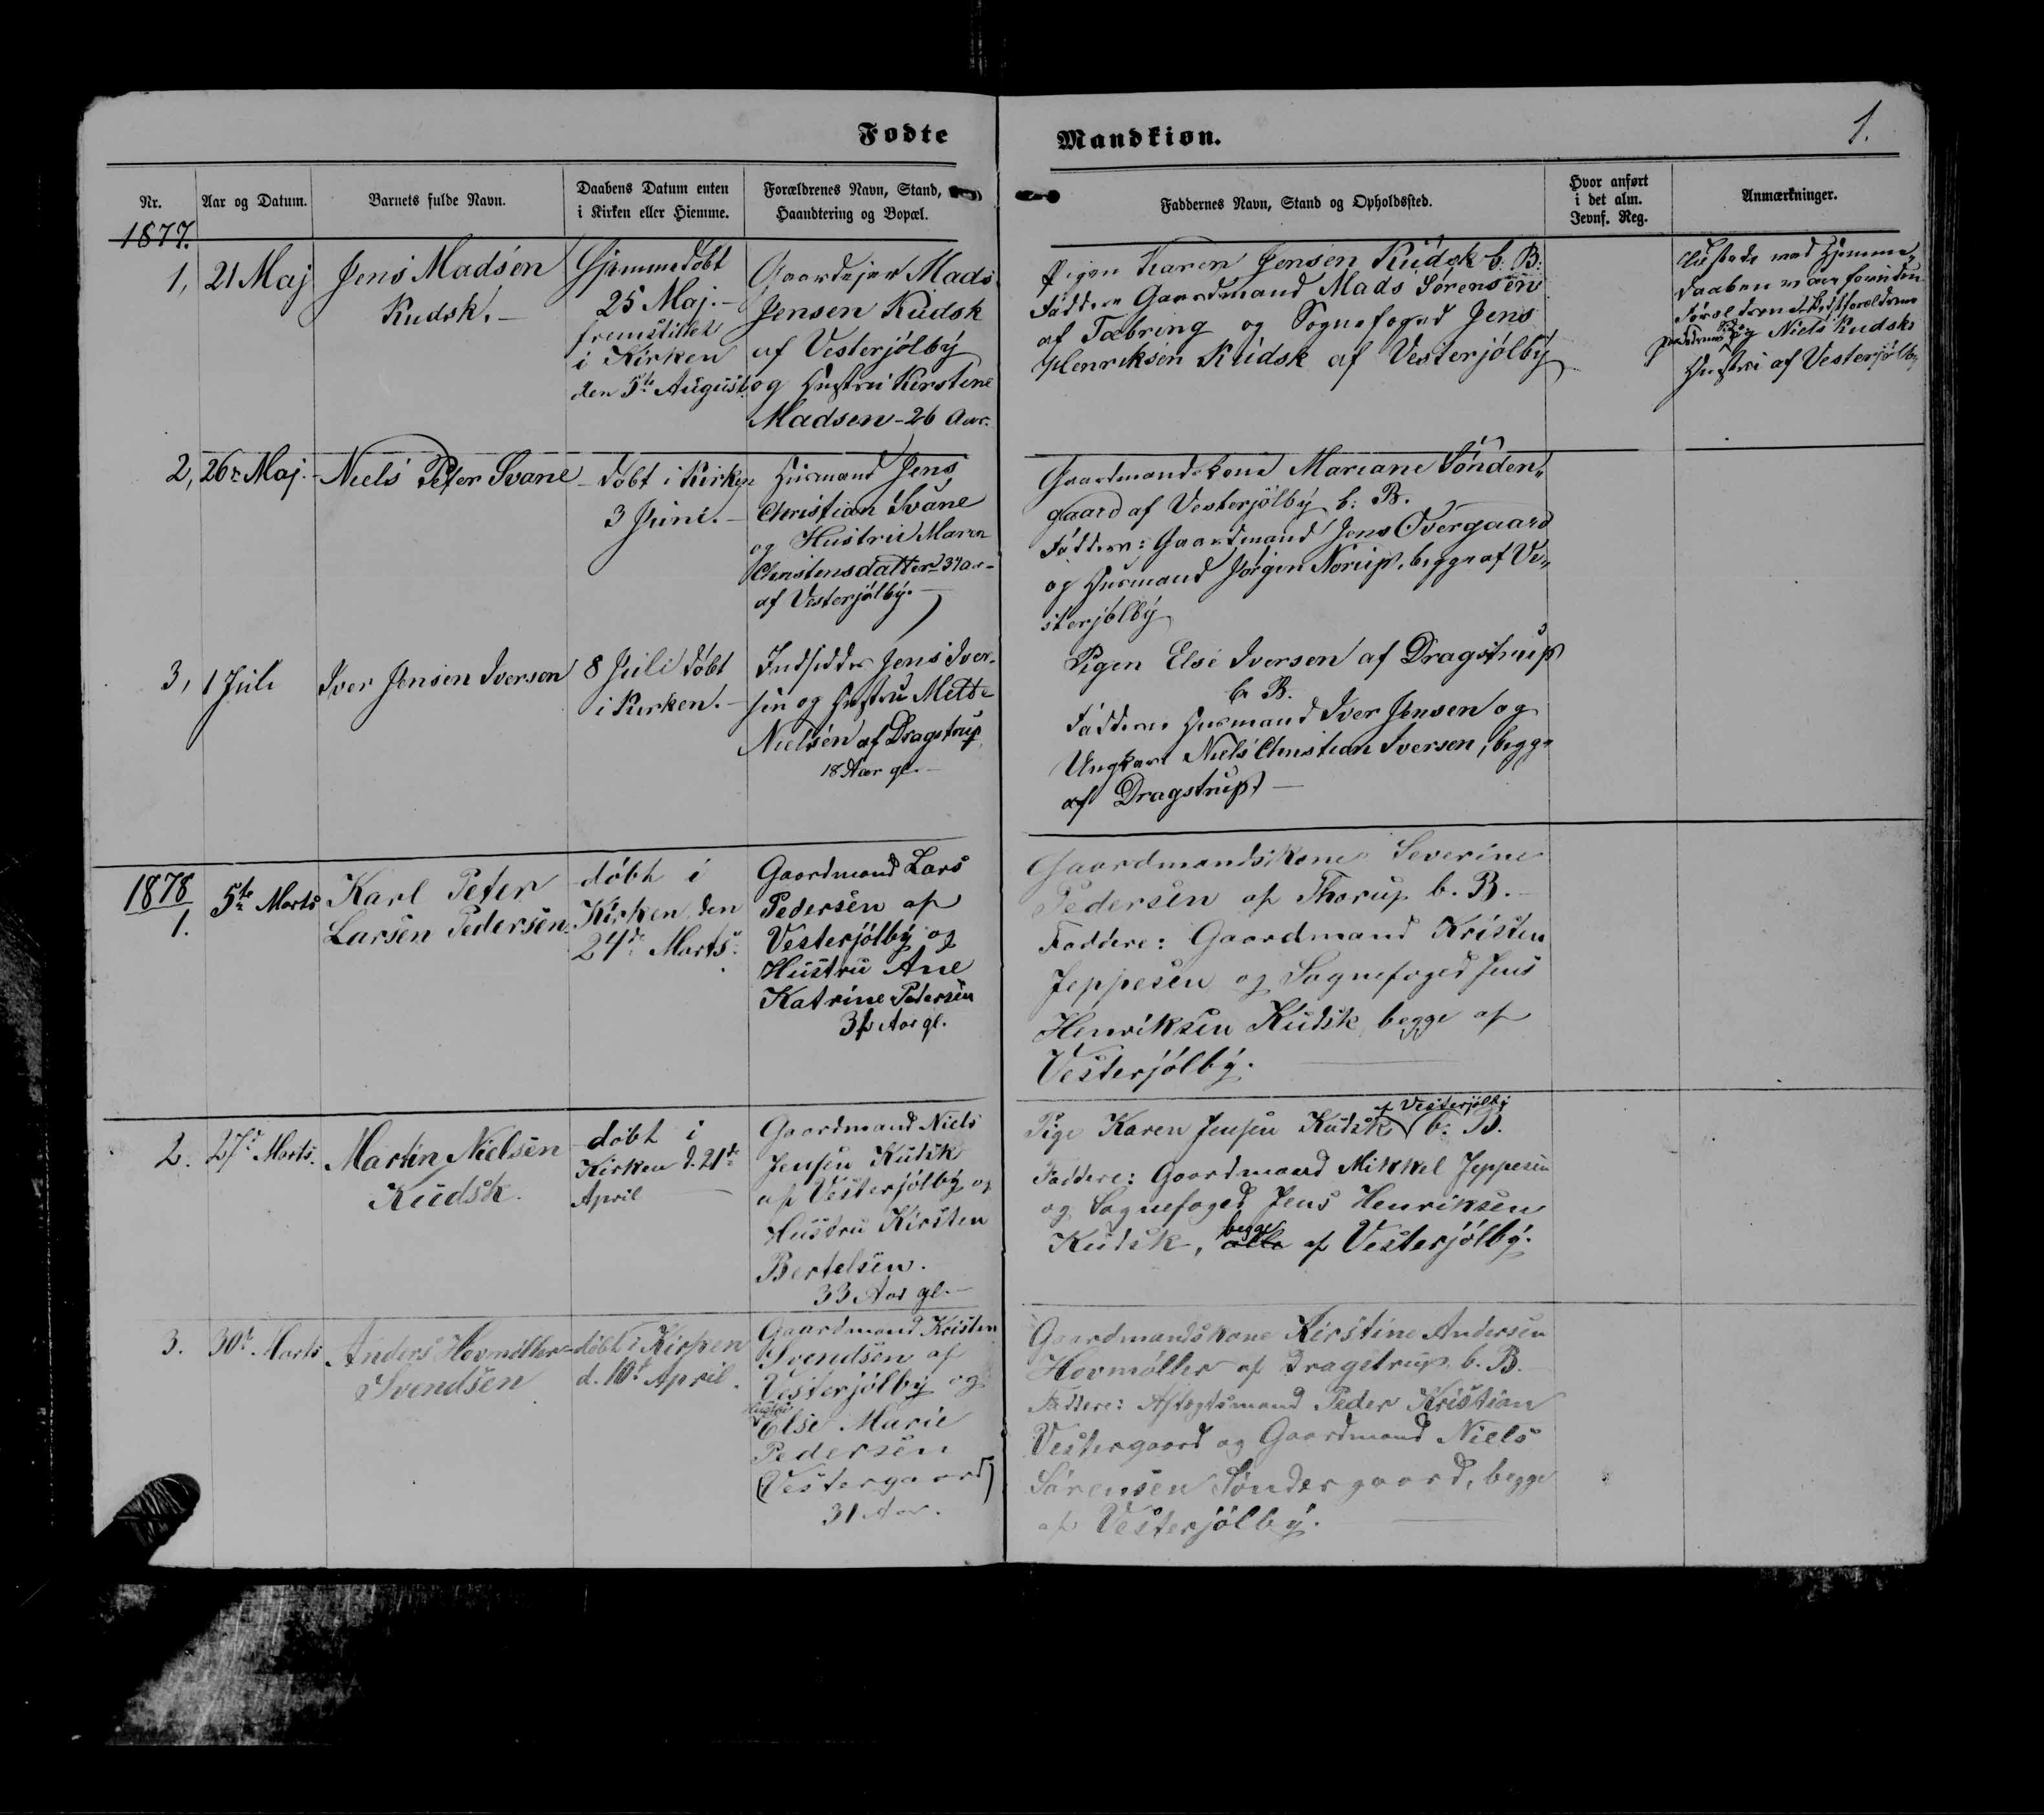 Fødte
Mandkiøn.
1.
Nr.
Aar og Datum.
Barnets fulde Navn.
Daabens Datum enten
i Kirken eller Hiemme.
Forældrenes Navn, Stand,
Haandtering og Bopæl.
Faddernes Navn, Stand og Opholdssted.
Hvor anført
i det alm.
Jevnf. Reg.
Anmærkninger.
1877.
1, 21 Maj
Jens Madsen
Kudsk.
Hjemmedøbt
25 Maj.
fremstillet
i Kirken
den 5te August.
Gaardejer Mads
Jensen Kudsk
af Vesterjølby
og Hustru Kirstine
Madsen - 26 Aar.
Pigen Karen Jensen Kudsk b. B.
Faddere Gaardmand Mads Sørensen
af Tæbring og Sognefoged Jens
Henriksen Kudsk af Vesterjølby
Tilstede ved Hjemme„
daaben var foruden
Forældrene Bedsteforældrene
og Niels Kudsks
Hustru af Vesterjølby
2, 26 Maj.
Niels Peter Svane
døbt i Kirken
3 Juni.
Husmand Jens
Christian Svane
og Hustru Maren
Christensdatter 37 Aar
af Vesterjølby.
Gaardmandskone Mariane Sønder„
gaard af Vesterjølby b. B.
Faddere: Gaardmand Jens Overgaard
og Husmand Jørgen Nørup, begge af Ve„
sterjølby
3, 1 Juli
Iver Jensen Iversen
8 Juli døbt
i Kirken.
Indsidder Jens Iver-
sen og Hustru Mette
Nielsen af Dragstrup
18 Aar gl.
Pigen Else Iversen af Dragstrup
b. B.
Faddere Husmand Iver Jensen og
Ungkarl Niels Christian Iversen, begge
af Dragstrup
1878
1. 5te Marts
Karl Peter
Larsen Pedersen
døbt i
Kirken den
24de Marts.
Gaardmand Lars
Pedersen af
Vesterjølby og
Hustru Ane
Katrine Pedersen
Aar gl.
Gaardmandskone Severine
Pedersen af Thorup b. B.
Faddere: Gaardmand Kristen
Jeppesen og Sognefoged Jens
Henriksen Kudsk begge af
Vesterjølby.
2. 27de Marts.
Martin Nielsen
Kudsk.
døbt i
Kirken d. 21de
April
Gaardmand Niels
Jensen Kudsk
af Vesterjølby og
Hustru Kirsten
Bertelsen.
33 Aar gl.
af Vesterjølby
Pige Karen Jensen Kudsk b. B.
Faddere: Gaardmand Mikkel Jeppesen
og Sognefoged Jens Henriksen
begge
Kudsk, alle af Vesterjølby.
3. 30te Marts
Anders Hovmøller
Svendsen
døbt i Kirken
d. 10de April.
Gaardmand Kristen
Svendsen af
Vesterjølby og
Hustru
Else Marie
Pedersen
(Vestergaard)
31 Aar.
Gaardmandskone Kirstine Andersen
Hovmøller af Dragstrup b. B.
Faddere: Aftægtsmand Peder Kristian
Vestergaard og Gaardmand Niels
Sørensen Søndergaard, begge
af Vesterjølby.